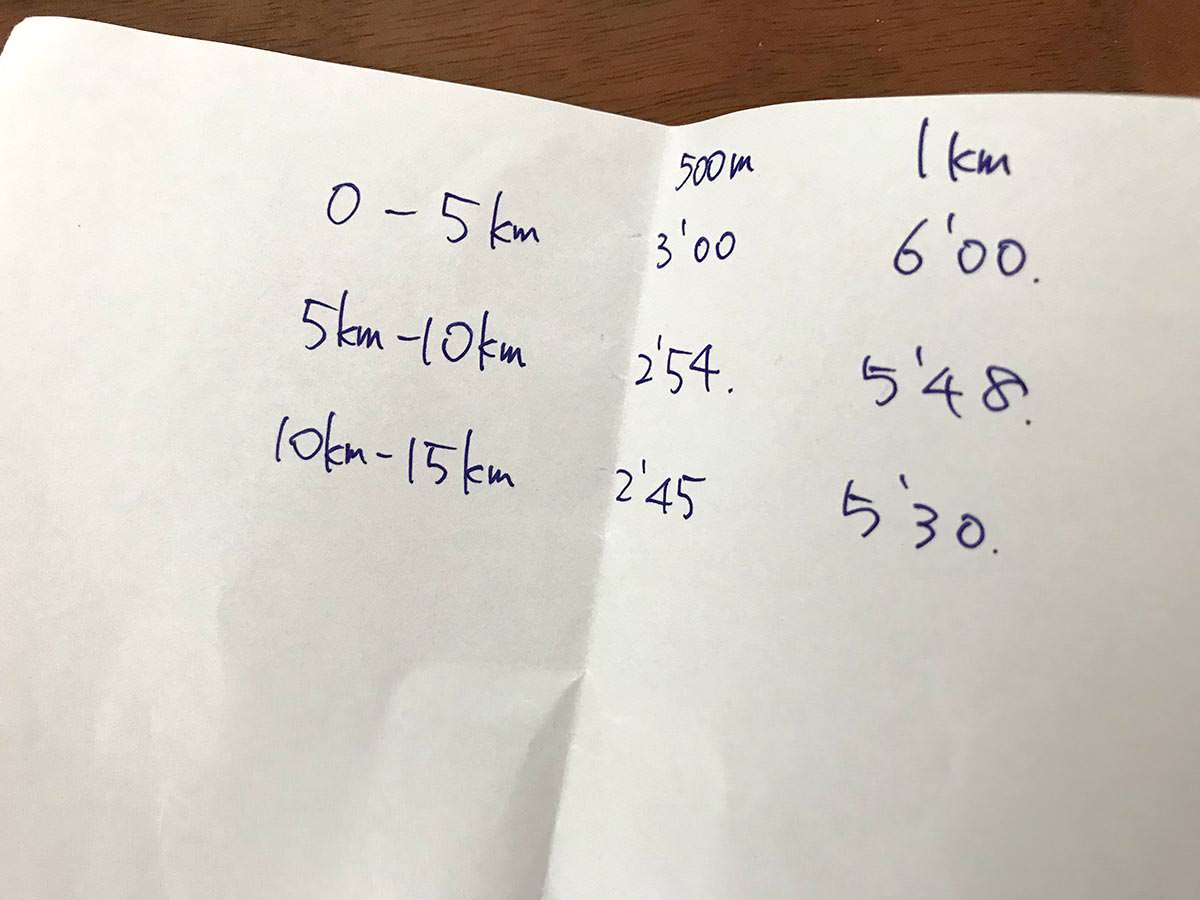 500m 1km
0-5km 3'00 6'00.
5km-10km 2'54. 5'48.
10km-15km 2'45 5'30.